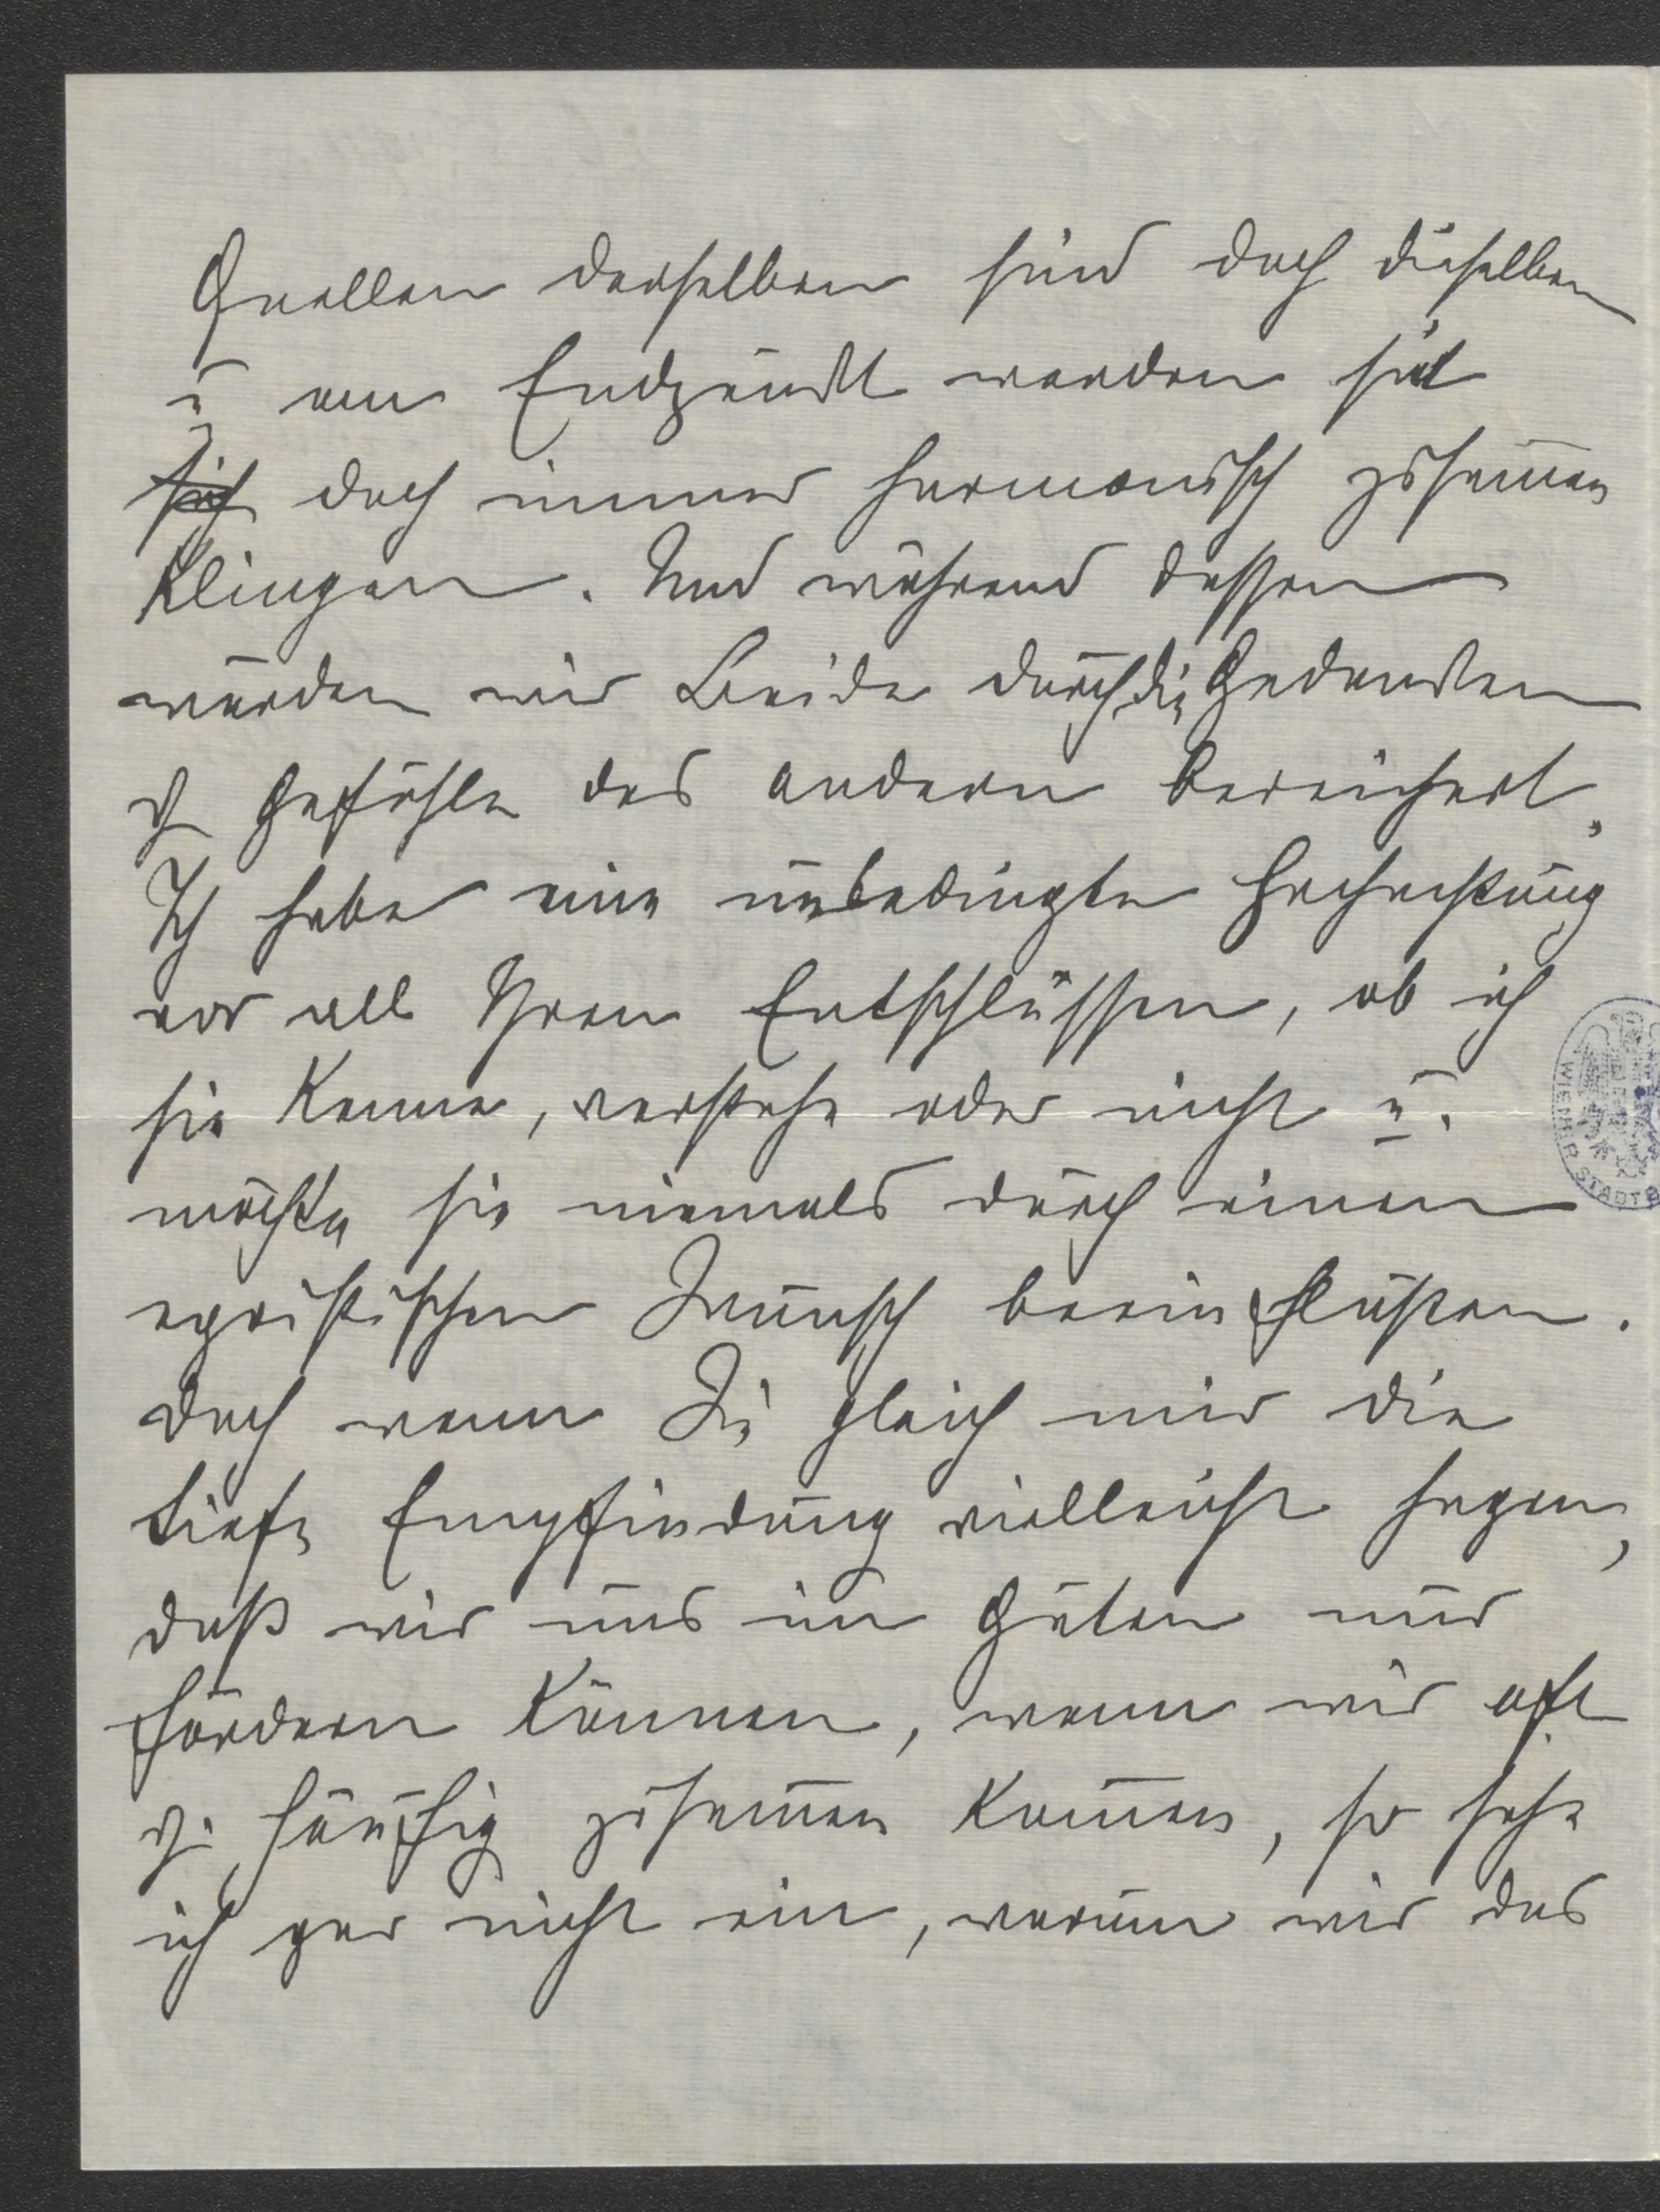 Quellen derselben sind doch dieselben
u am Endpunkt werden sie
sich doch immer harmonisch zusam̅en
klingen. Und während dessen
würden wir Beide durch die Gedanken
& Gefühle des andern bereichert.
Ich habe eine unbedingte Hochachtung
vor all Ihren Entschlüssen, ob ich
sie kenne, verstehe oder nicht u.
möchte sie niemals durch einen
egoistischen Wunsch beeinflußen.
Doch wenn Sie gleich mir die
tiefe Empfindung vielleicht hegen,
daß wir uns im Guten nur
fördern können, wenn wir oft
& häufig zusam̅en kom̅en, so sehe
ich gar nicht ein, warum wir das
WIENER STADTB